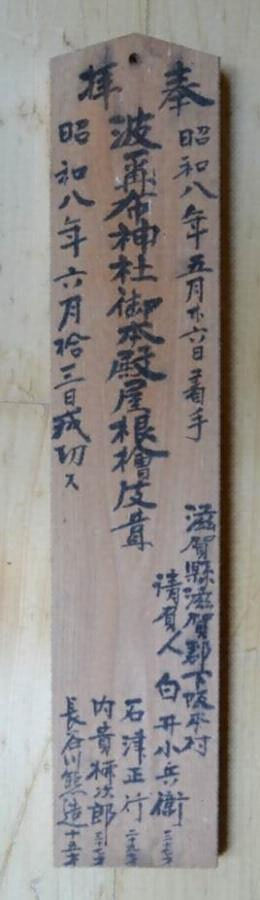 奉拝
昭和八年五月廿六日着手
波弥布神社御本殿屋根檜皮葺
昭和八年六月拾三日成功ス
滋賀縣滋賀郡下阪本村
請負人 白井小兵衛
石津正行 二十九才
内貴
次郎
長谷川熊造 十五才